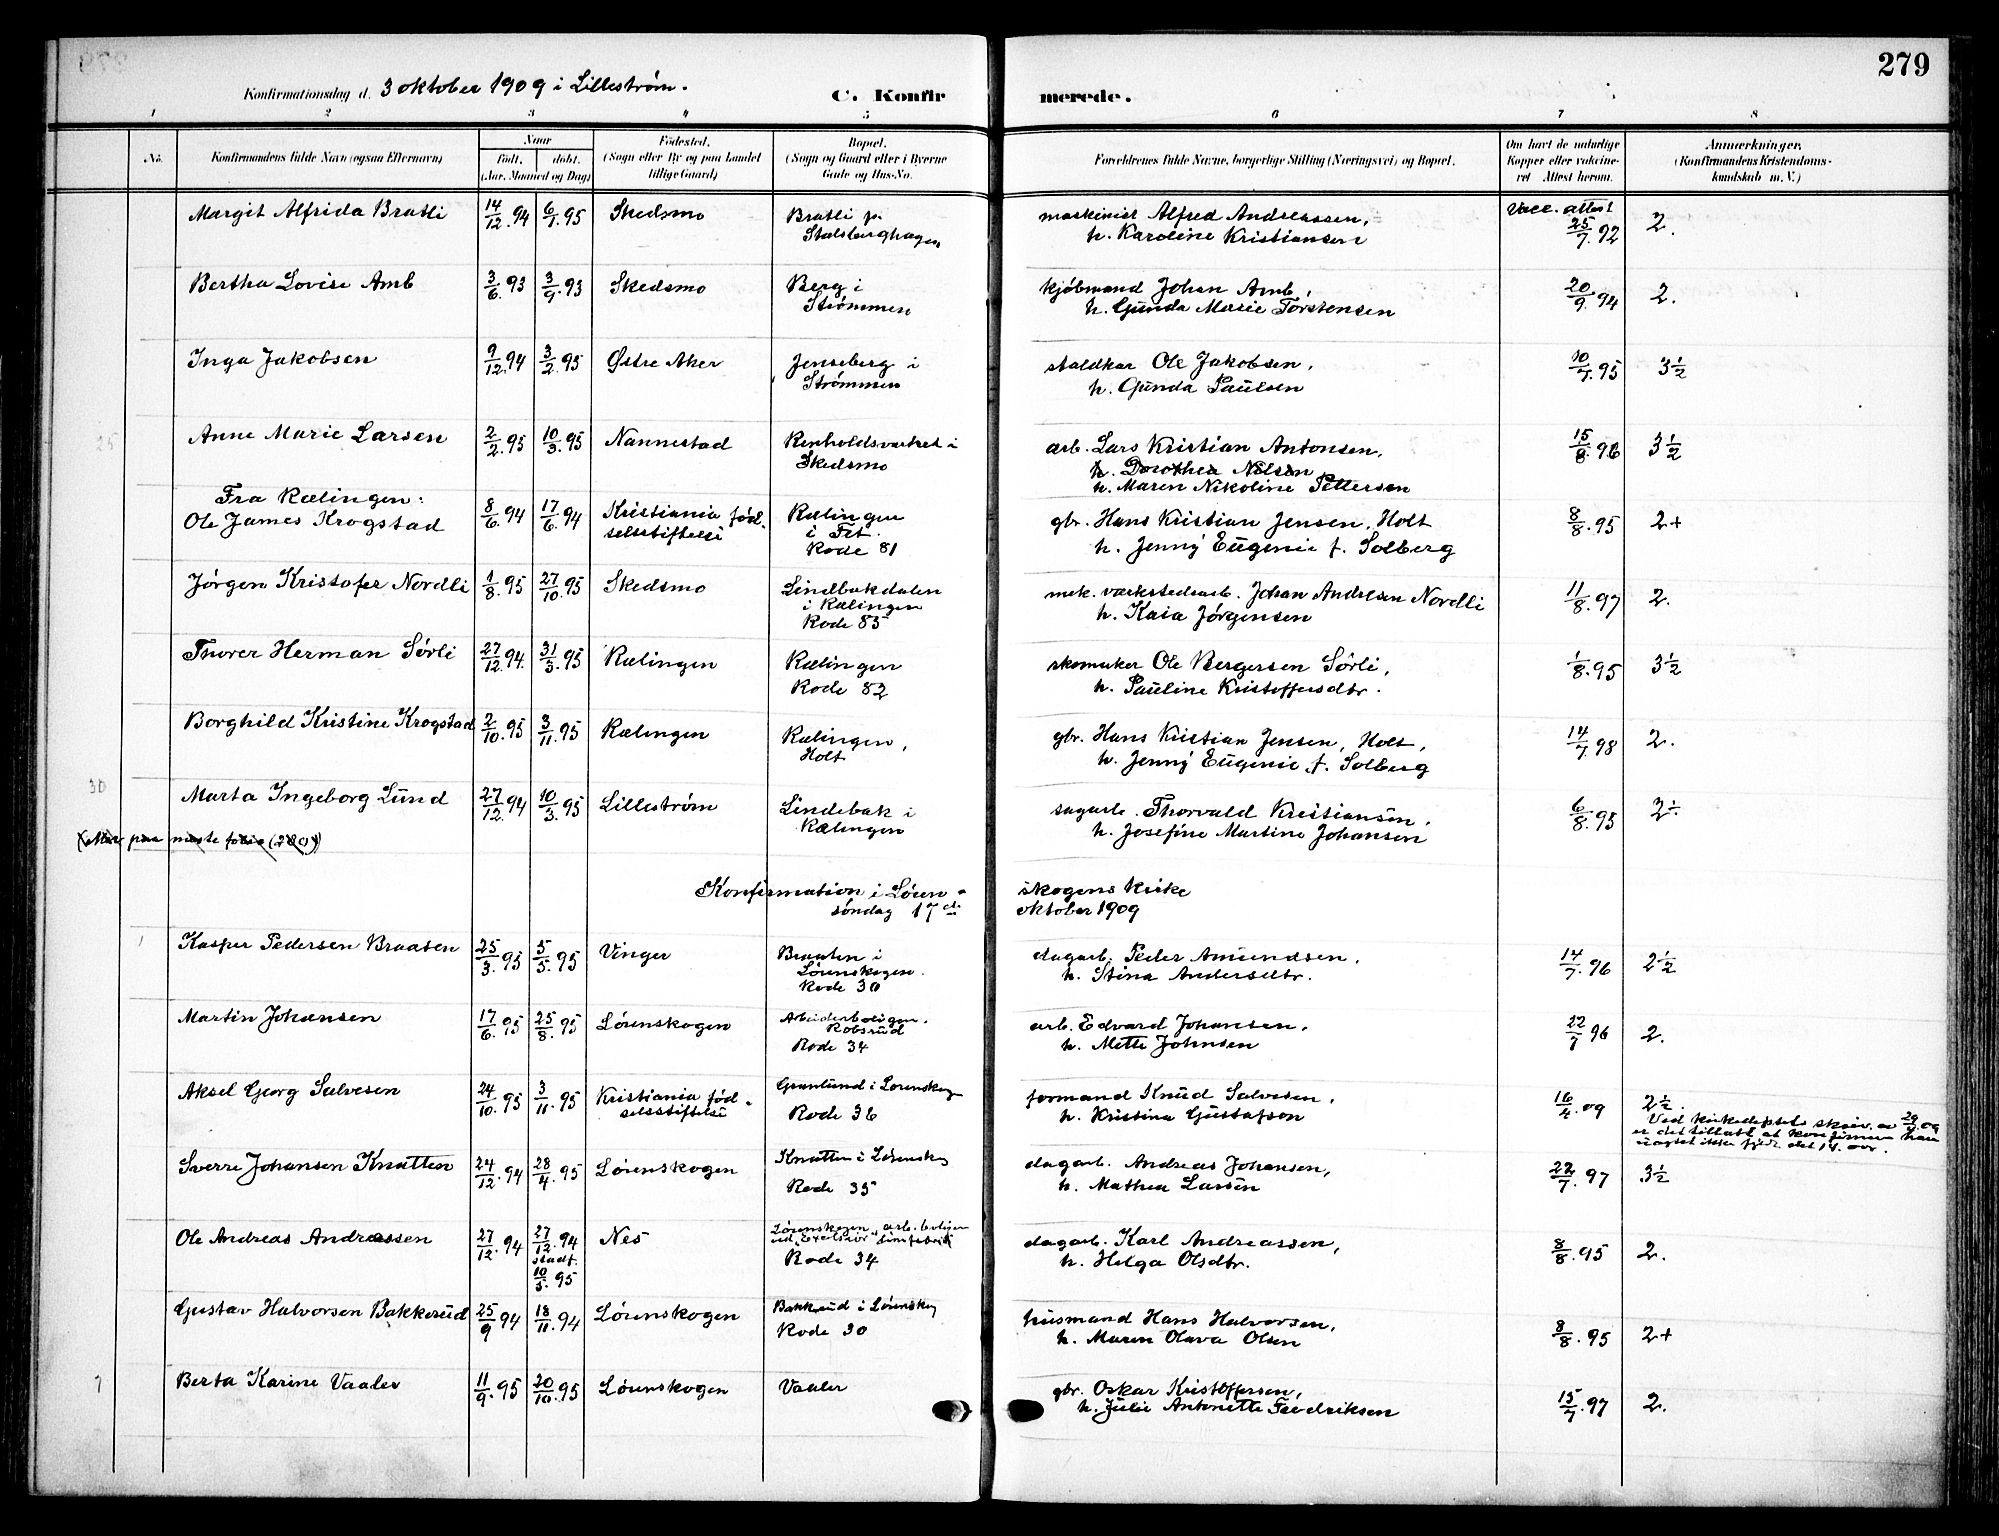 279
Konfirmationsdag d. 3 oktober 1909 i Lillestrøm.
C. Konfirmerede.
1 2 3 4 5 6 7 8
No. Konfirmandens fulde Navn (ogsaa Efternavn) Naar født. døbt. (Aar, Maaned og Dag) Fødested. (Sogn eller By og paa Landet tillige Gaard) Bopæl. (Sogn og Gaard eller i Byerne Gade og Hus-No. Forældrenes fulde Navne, borgerlige Stilling (Næringsvei) og Bopæl. Om havt de naturlige Kopper eller vakcineret Attest herom. Anmærkninger. (Konfirmandens Kristendomskundskab m. V.)
Margit Alfrida Bratli 14/12.94 6/1.95 Skedsmo Bratli pr. Stalsberghagen maskinist Alfred Andreassen, h. Karoline Kristiansen Vacc. attest 25/7.92 2.
Bertha Lovise Amb 3/6.93 3/9.93 Skedsmo Berg i Strømmen kjøbmand Johan Amb, h. Gunda Marie Torstensen 20/9.94 2.
Inga Jakobsen 9/12.94 3/2.95 Østre Aker Jenseberg i Strømmen staldkar Ole Jakobsen, h. Gunda Paulsen 10/7.95 3½
25 Anne Marie Larsen 2/2.95 10/3.95 Nannestad Renholdsverket i Skedsmo arb. Lars Kristian Antonsen, h. Dorothea Nilsen h. Maren Nikoline Pettersen 15/8.96 3½
Fra Rælingen:
Ole James Krogstad 8/6.94 17/6.94 Kristiania fødselsstiftelse Rælingen i Fet. Rode 81 gbr. Hans Kristian Jensen, Holt h. Jenny Eugenie f. Solberg 8/8.95 2+
Jørgen Kristofer Nordli 1/8.95 27/10.95 Skedsmo Lindbakdalen i Rælingen Rode 85 mek. værkstedarb. Johan Andresen Nordli h. Kaia Jørgensen 11/8.97 2.
Thorer Herman Sørli 27/12.94. 31/3.95 Rælingen Rælingen Rode 82 skomaker Ole Bergersen Sørli, h. Pauline Kristoffersdtr. 1/8.95 3½
Borghild Kristine Krogstad 2/10.95 3/11.95 Rælingen Rælingen, Holt gbr. Hans Kristian Jensen, Holt, h. Jenny Eugenie f. Solberg 14/7.98 2.
30 Marta Ingeborg Lund 27/12.94 10/3.95 Lillestrøm Lindebak i Rælingen sagarb. Thorvald Kristiansen, h. Josefine Martine Johansen 6/8.95 2÷
paa næste folio (280)
Konfirmation i Lørenskogens kirke
søndag 17de oktober 1909
1 Kasper Pedersen Braasen 25/3.95 5/5.95 Vinger Braaten i Lørenskogen. Rode 30 dagarb. Peder Amundsen, h. Stina Andersdtr. 14/7.96 2½
Martin Johansen 17/6.95 25/8.95 Lørenskogen Arbeiderboligen, Robsrud Rode 34 arb. Edvard Johansen, h. Mette Johnsen 22/7 96 2.
Aksel Georg Salvesen 24/10.95 3/11.95 Kristiania fødselsstiftelse Granlund i Lørenskog Rode 36 formand Knud Salvesen, h. Kristina Gustafson 16/4.09 2½. Ved kirkedeptets skriv. av 29/9.09 er det tillatt at konfirmere han uagtet ikke fyldt det 14. aar.
Sverre Johansen Knatten 24/12.94 28/4.95 Lørenskogen Knatten i Lørenskog Rode 35 dagarb. Andreas Johansen, h. Mathea Larsen 22/7.97 3½
Ole Andreas Andreassen 27/12.94 27/12.94 stadf. 10/3.95 Nes Lørenskogen, arb.bolig ved "Excelsior" limfabrik Rode 34 dagarb. Karl Andreassen, h. Helga Olsdtr. 8/8.95 2.
Gustav Halvorsen Bakkerud 25/9 94 18/11.94 Lørenskogen Bakkerud i Lørenskog Rode 30 husmand Hans Halvorsen, h. Maren Olava Olsen 8/8.95 2+
7 Berta Karine Vaaler 11/9.95 20/10.95 Lørenskogen Vaaler gbr. Oskar Kristoffersen, h. Julie Antonette Fredriksen 15/7.97 2.